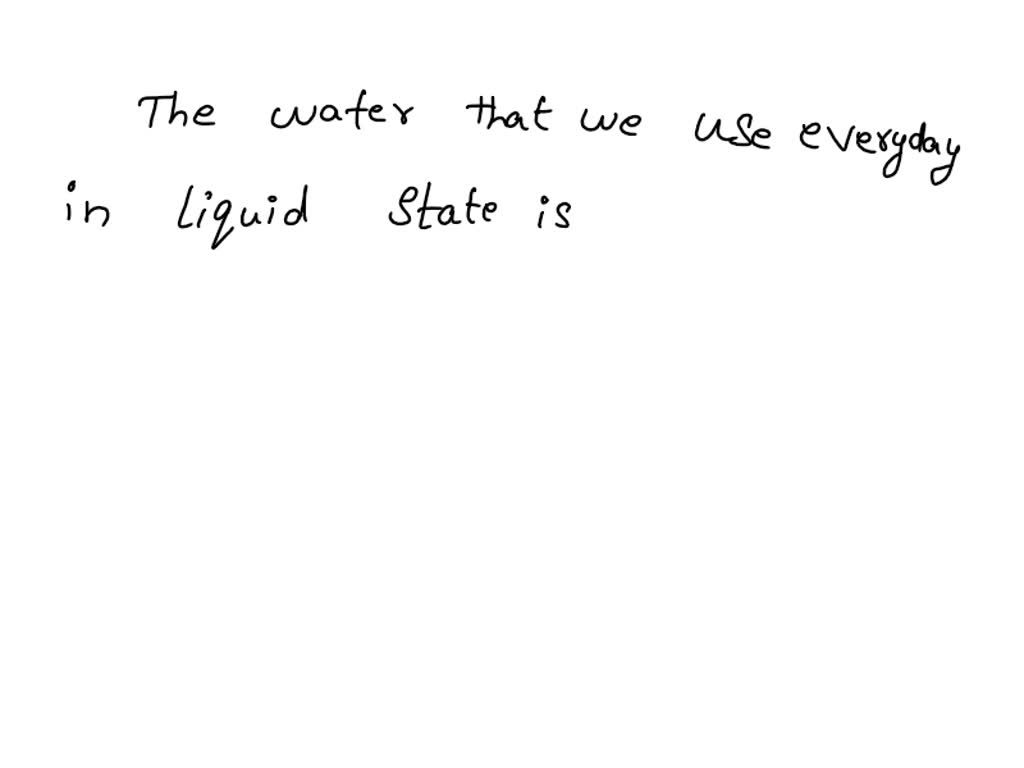 The water that we use everyday
in liquid state is